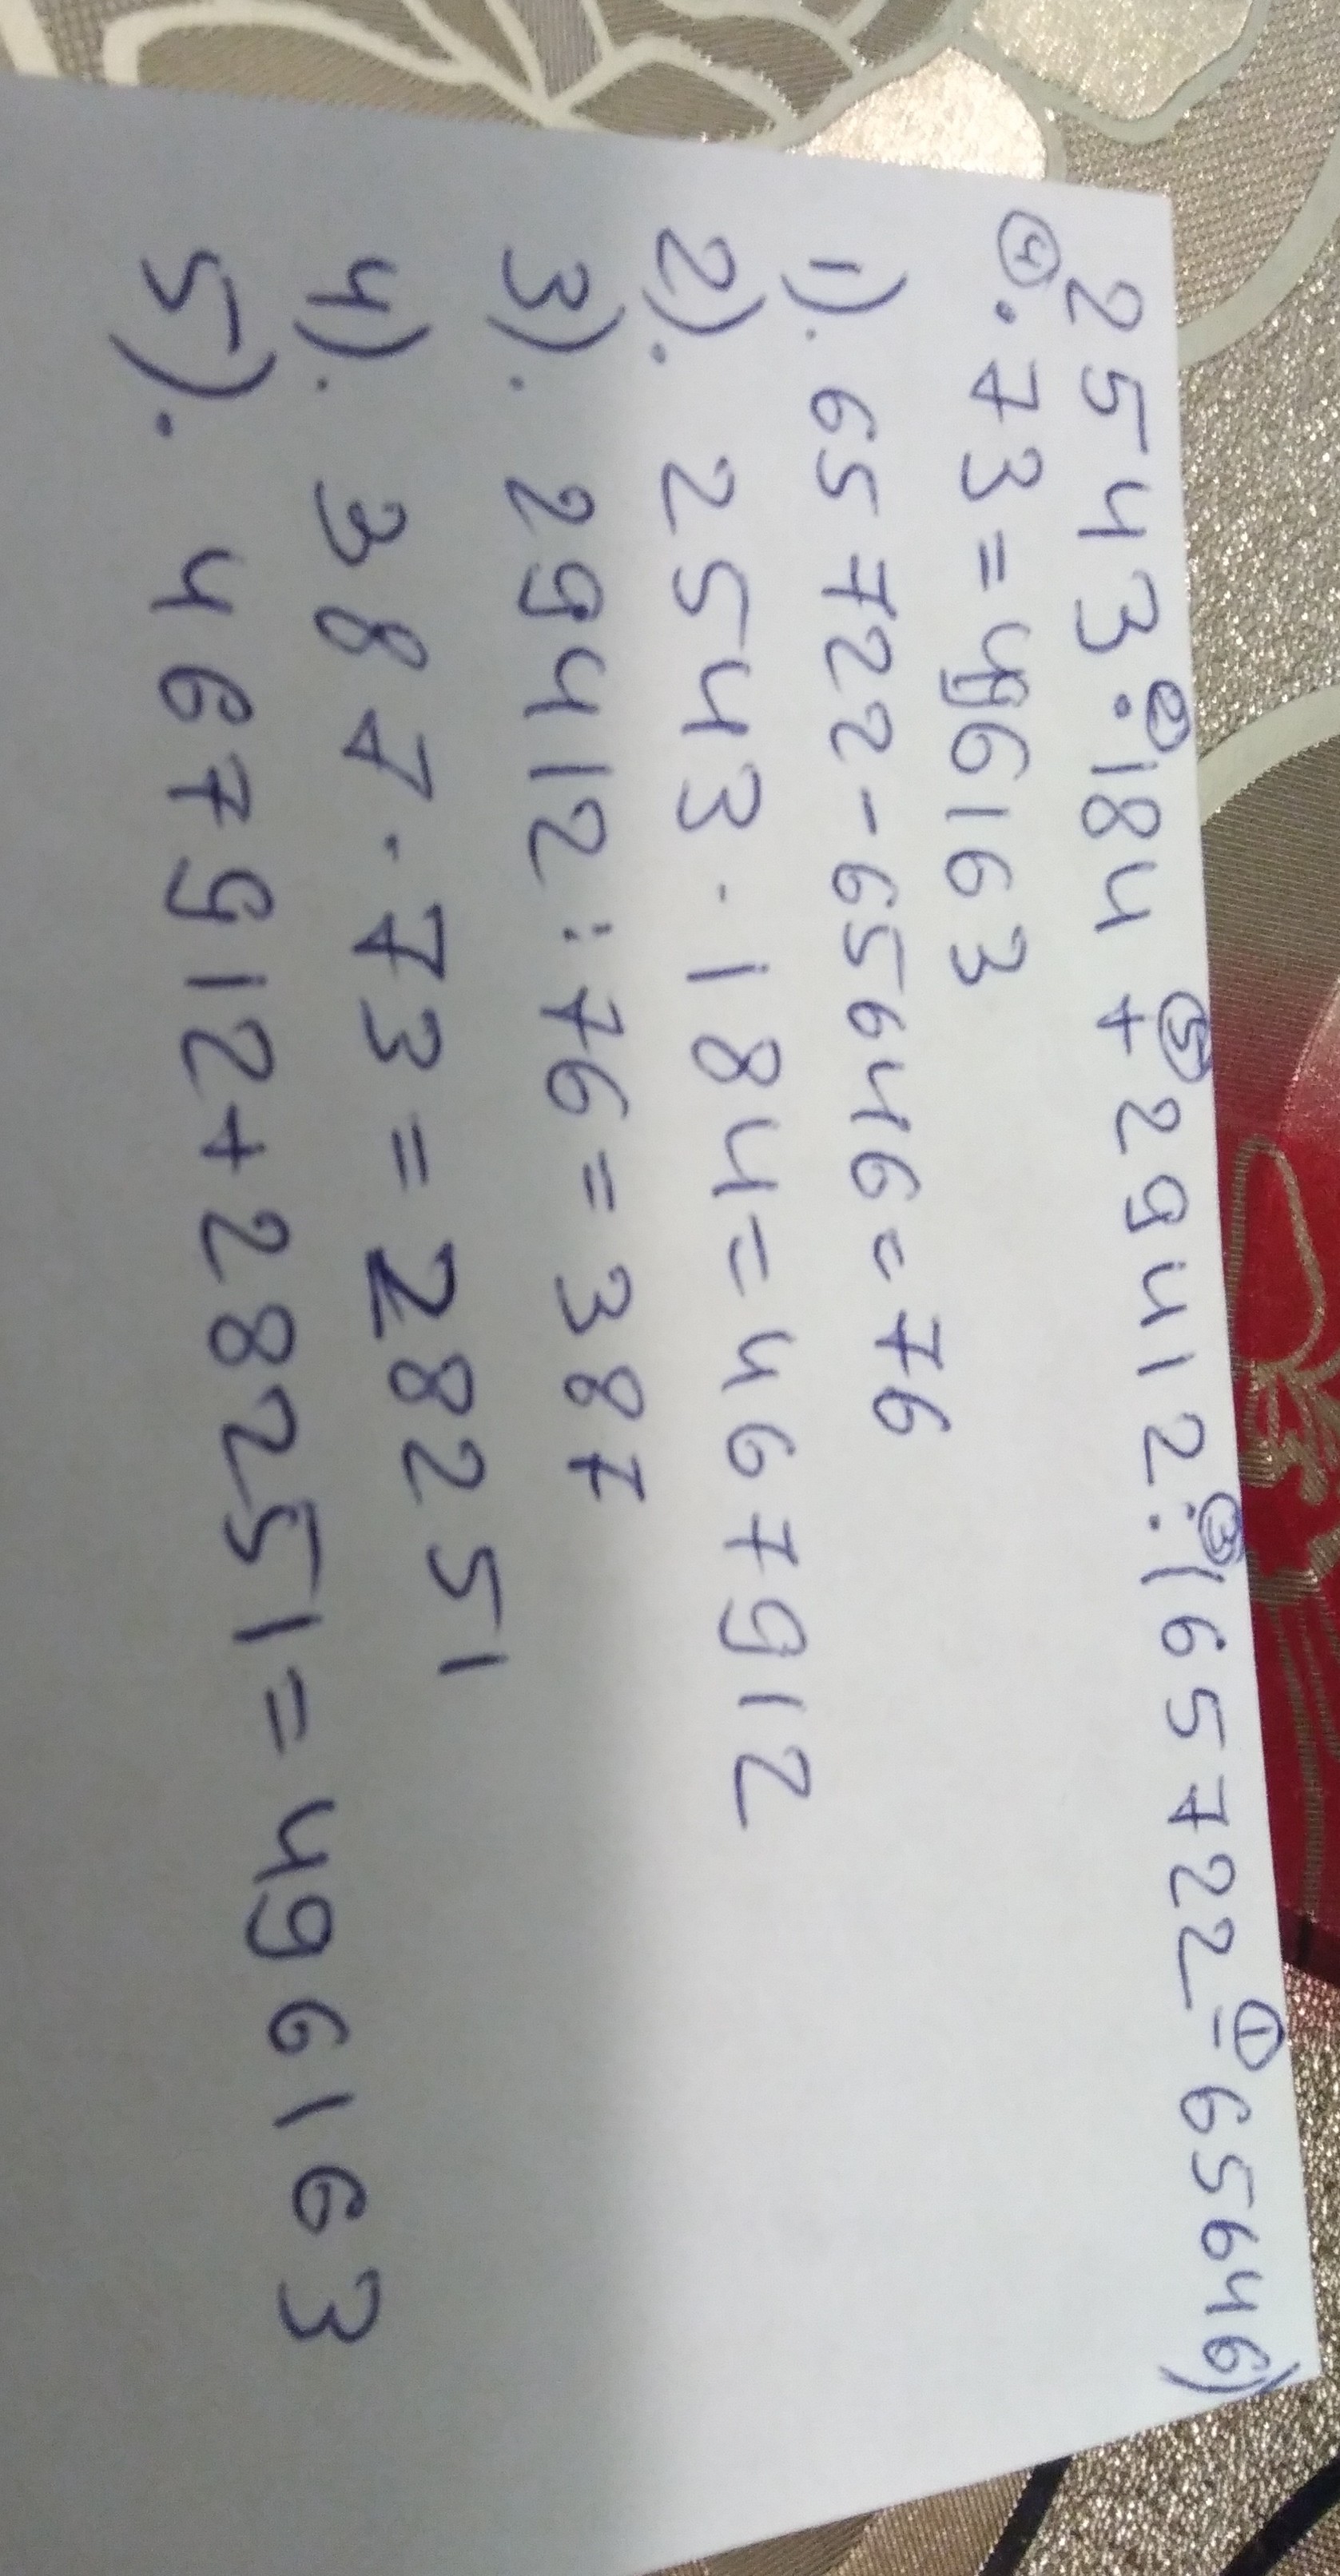 2543 ②· 184 +⑤ 29412 :③ (65722 -① 65646)
④· 73 = 496163
1). 65722 - 65646 = 76
2). 2543 · 184 = 467912
3). 29412 : 76 = 387
4). 387 · 73 = 28251
5). 467912 + 28251 = 496163